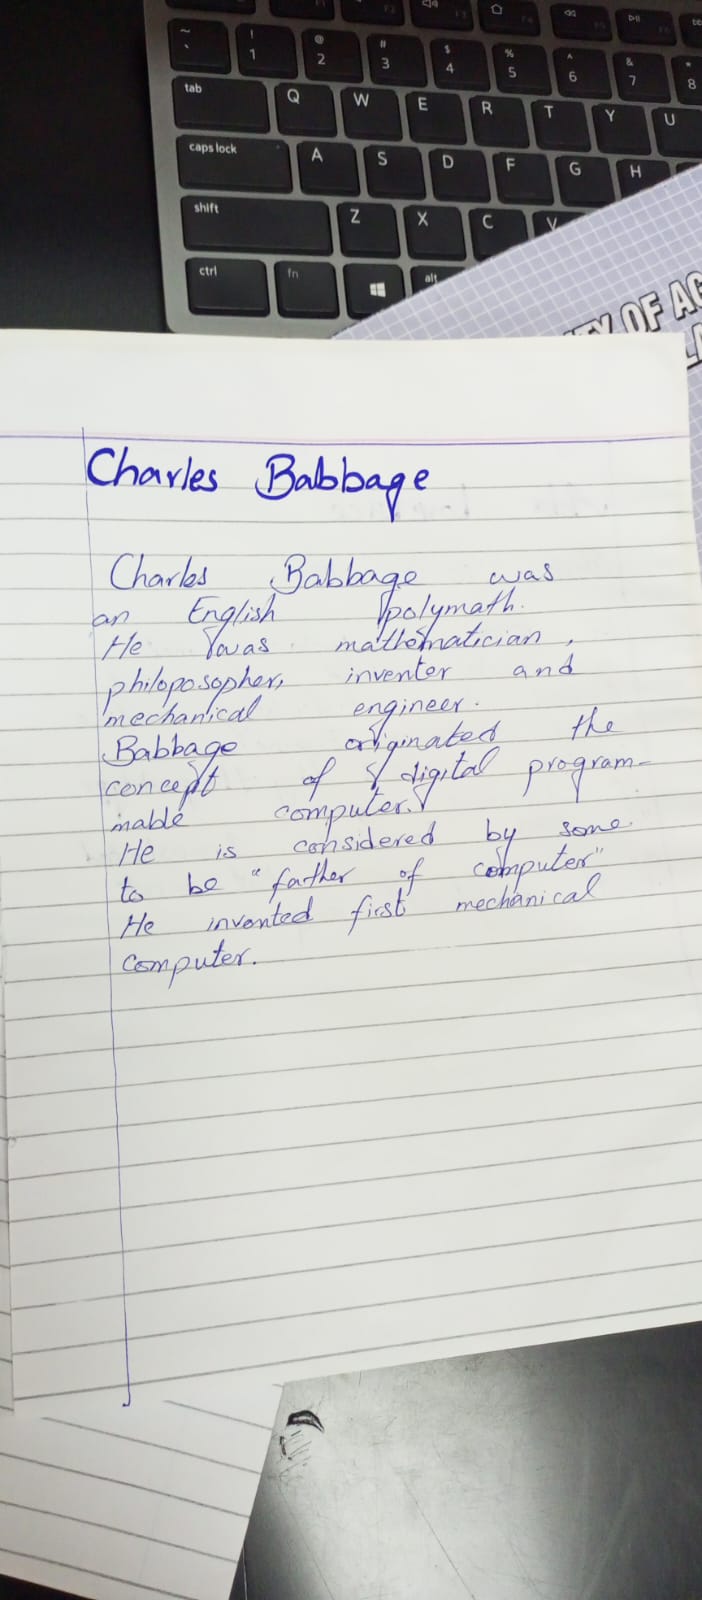 ~ ` ! 1 @ 2 # 3 $ 4 % 5 ^ 6 & 7 * 8
tab Q W E R T Y U
caps lock A S D F G H
shift Z X C V
ctrl fn alt
OF AG
Charles Babbage
Charles Babbage was
an English polymath.
He was mathematician,
philoposopher, inventer and
mechanical engineer.
Babbage originated the
concept of digital program-
mable computer.
He is considered by some
to be "farther of computer"
He invented first mechanical
computer.